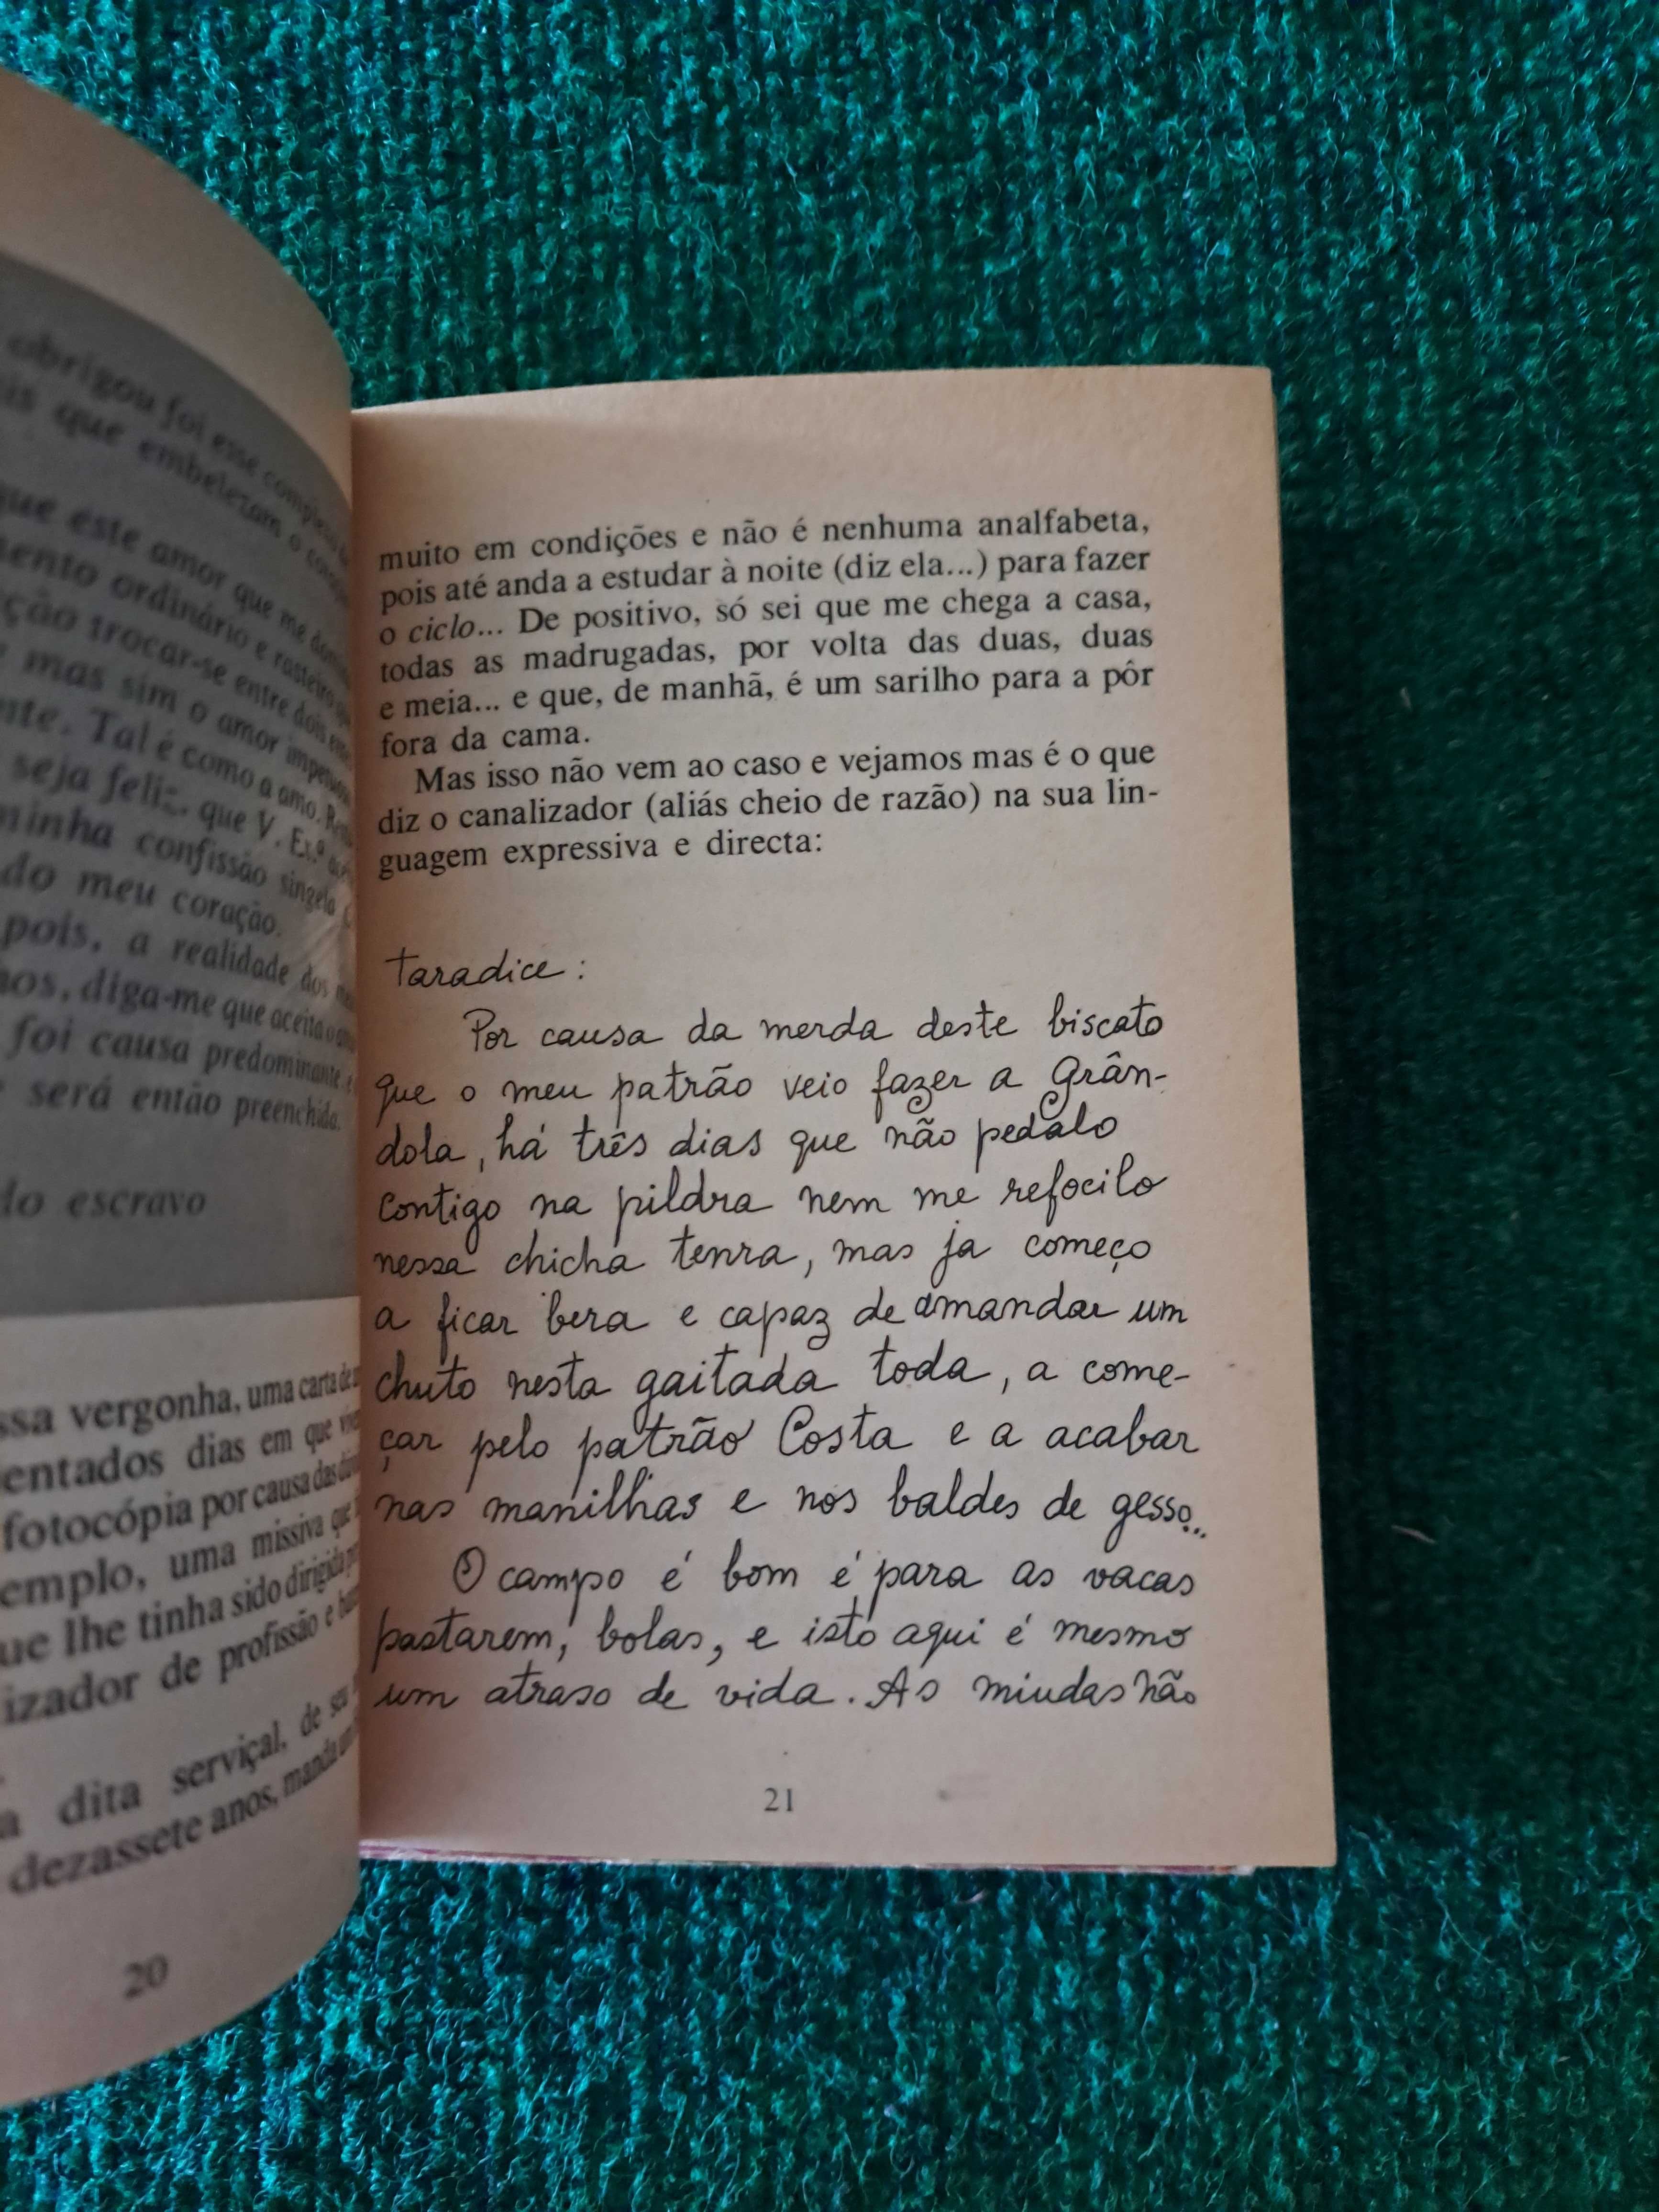 obrigou foi esse
que embelezam o
que este amor que me
ordinário e rasteiro
trocar-se entre dois
mas sim o amor
Tal é como a amo.
seja feliz, que V. Ex.ª
minha confissão singela
do meu coração.
pois, a realidade dos
diga-me que aceita o
foi causa predominante
será então preenchida.
escravo
vergonha, uma carta de
dias em que
fotocópia por causa das
uma missiva que
que lhe tinha sido dirigida
de profissão e
a dita serviçal, de seu
dezassete anos, manda um
20
muito em condições e não é nenhuma analfabeta,
pois até anda a estudar à noite (diz ela...) para fazer
o ciclo... De positivo, só sei que me chega a casa,
todas as madrugadas, por volta das duas, duas
e meia... e que, de manhã, é um sarilho para a pôr
fora da cama.
Mas isso não vem ao caso e vejamos mas é o que
diz o canalizador (aliás cheio de razão) na sua lin-
guagem expressiva e directa:
Taradice:
Por causa da merda deste biscato
que o meu patrão veio fazer a Grân-
dola, há três dias que não pedalo
contigo na pildra nem me refocilo
nessa chicha tenra, mas ja começo
a ficar bera e capaz de amandar um
chuto nesta gaitada toda, a come-
çar pelo patrão Costa e a acabar
nas manilhas e nos baldes de gesso...
O campo é bom é para as vacas
pastarem, bolas, e isto aqui é mesmo
um atraso de vida. As miudas não
21